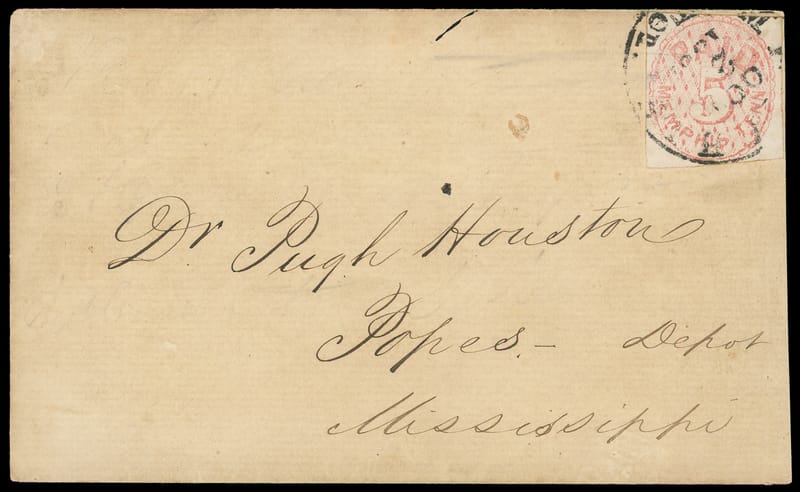 PAID
5
MEMPHIS, TENN
Dr Pugh Houston
Popes - Depot
Mississippi